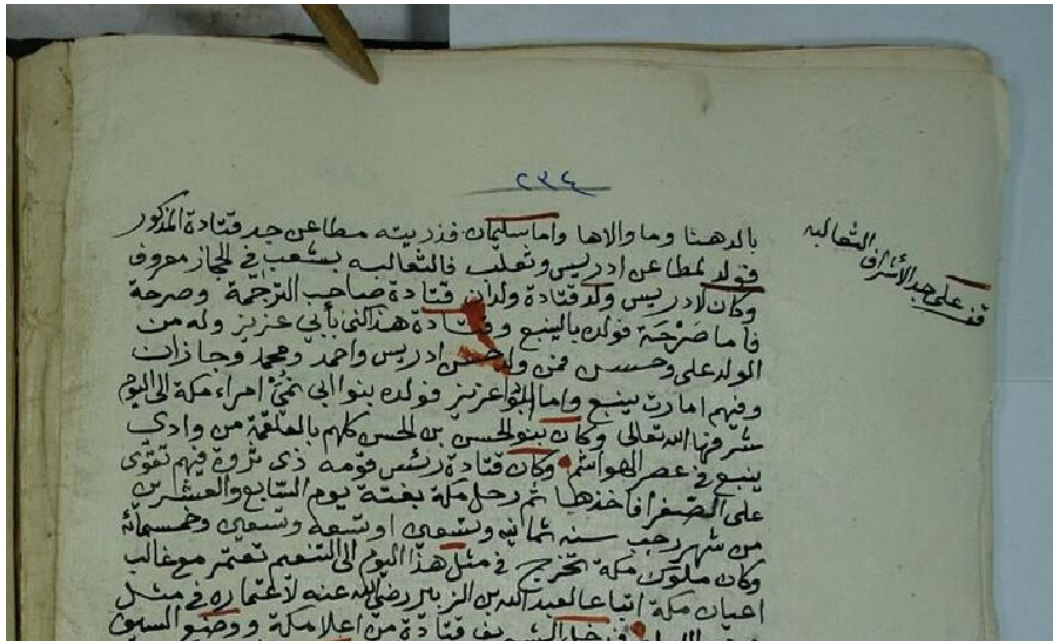 ٢٣٤
بالدهنا وما والاها واما سليمان فذريته مطاعن جد قتادة المذكور
فولد لمطاعن ادريس وثعلب فالثعالبه بشعب في الحجاز معروف
وكان لادريس ولد قتادة ولدان قتادة صاحب الترجمة وصرحة
فاما صَرْحَة فولده بالينبع وقتادة هذا اكنى بأبي عزيز وله من
الولد على وحسن فمن ولد حسن ادريس واحمد ومحمد وجازان
وفيهم امارت ينبع واما ابو عزيز فولده بنوا ابي نمي امراء مكة الى اليوم
شرفها الله تعالى وكان بنو الحسن بن الحسن كلهم بالعلقمة من وادي
ينبع في عصر الهواشم وكان قتادة رئيس قومه ذى ثروة فيهم تقوى
على الصفرا فاخذها ثم رحل مكة بغتة يوم السابع والعشرين
من شهر رجب سنه ثمانيه وتسعين او تسعه وتسعين وخمسمائه
وكان ملوك مكة تخرج في مثل هذا اليوم الى التنعيم تعتمر مع غالب
اعيان مكة اتباعا لعبد الله بن الزبير رضي الله عنه لاعتماره في مثل
قتادة من اعلا مكة ووضع السيف
قف على جد الأشراف الثعالبه